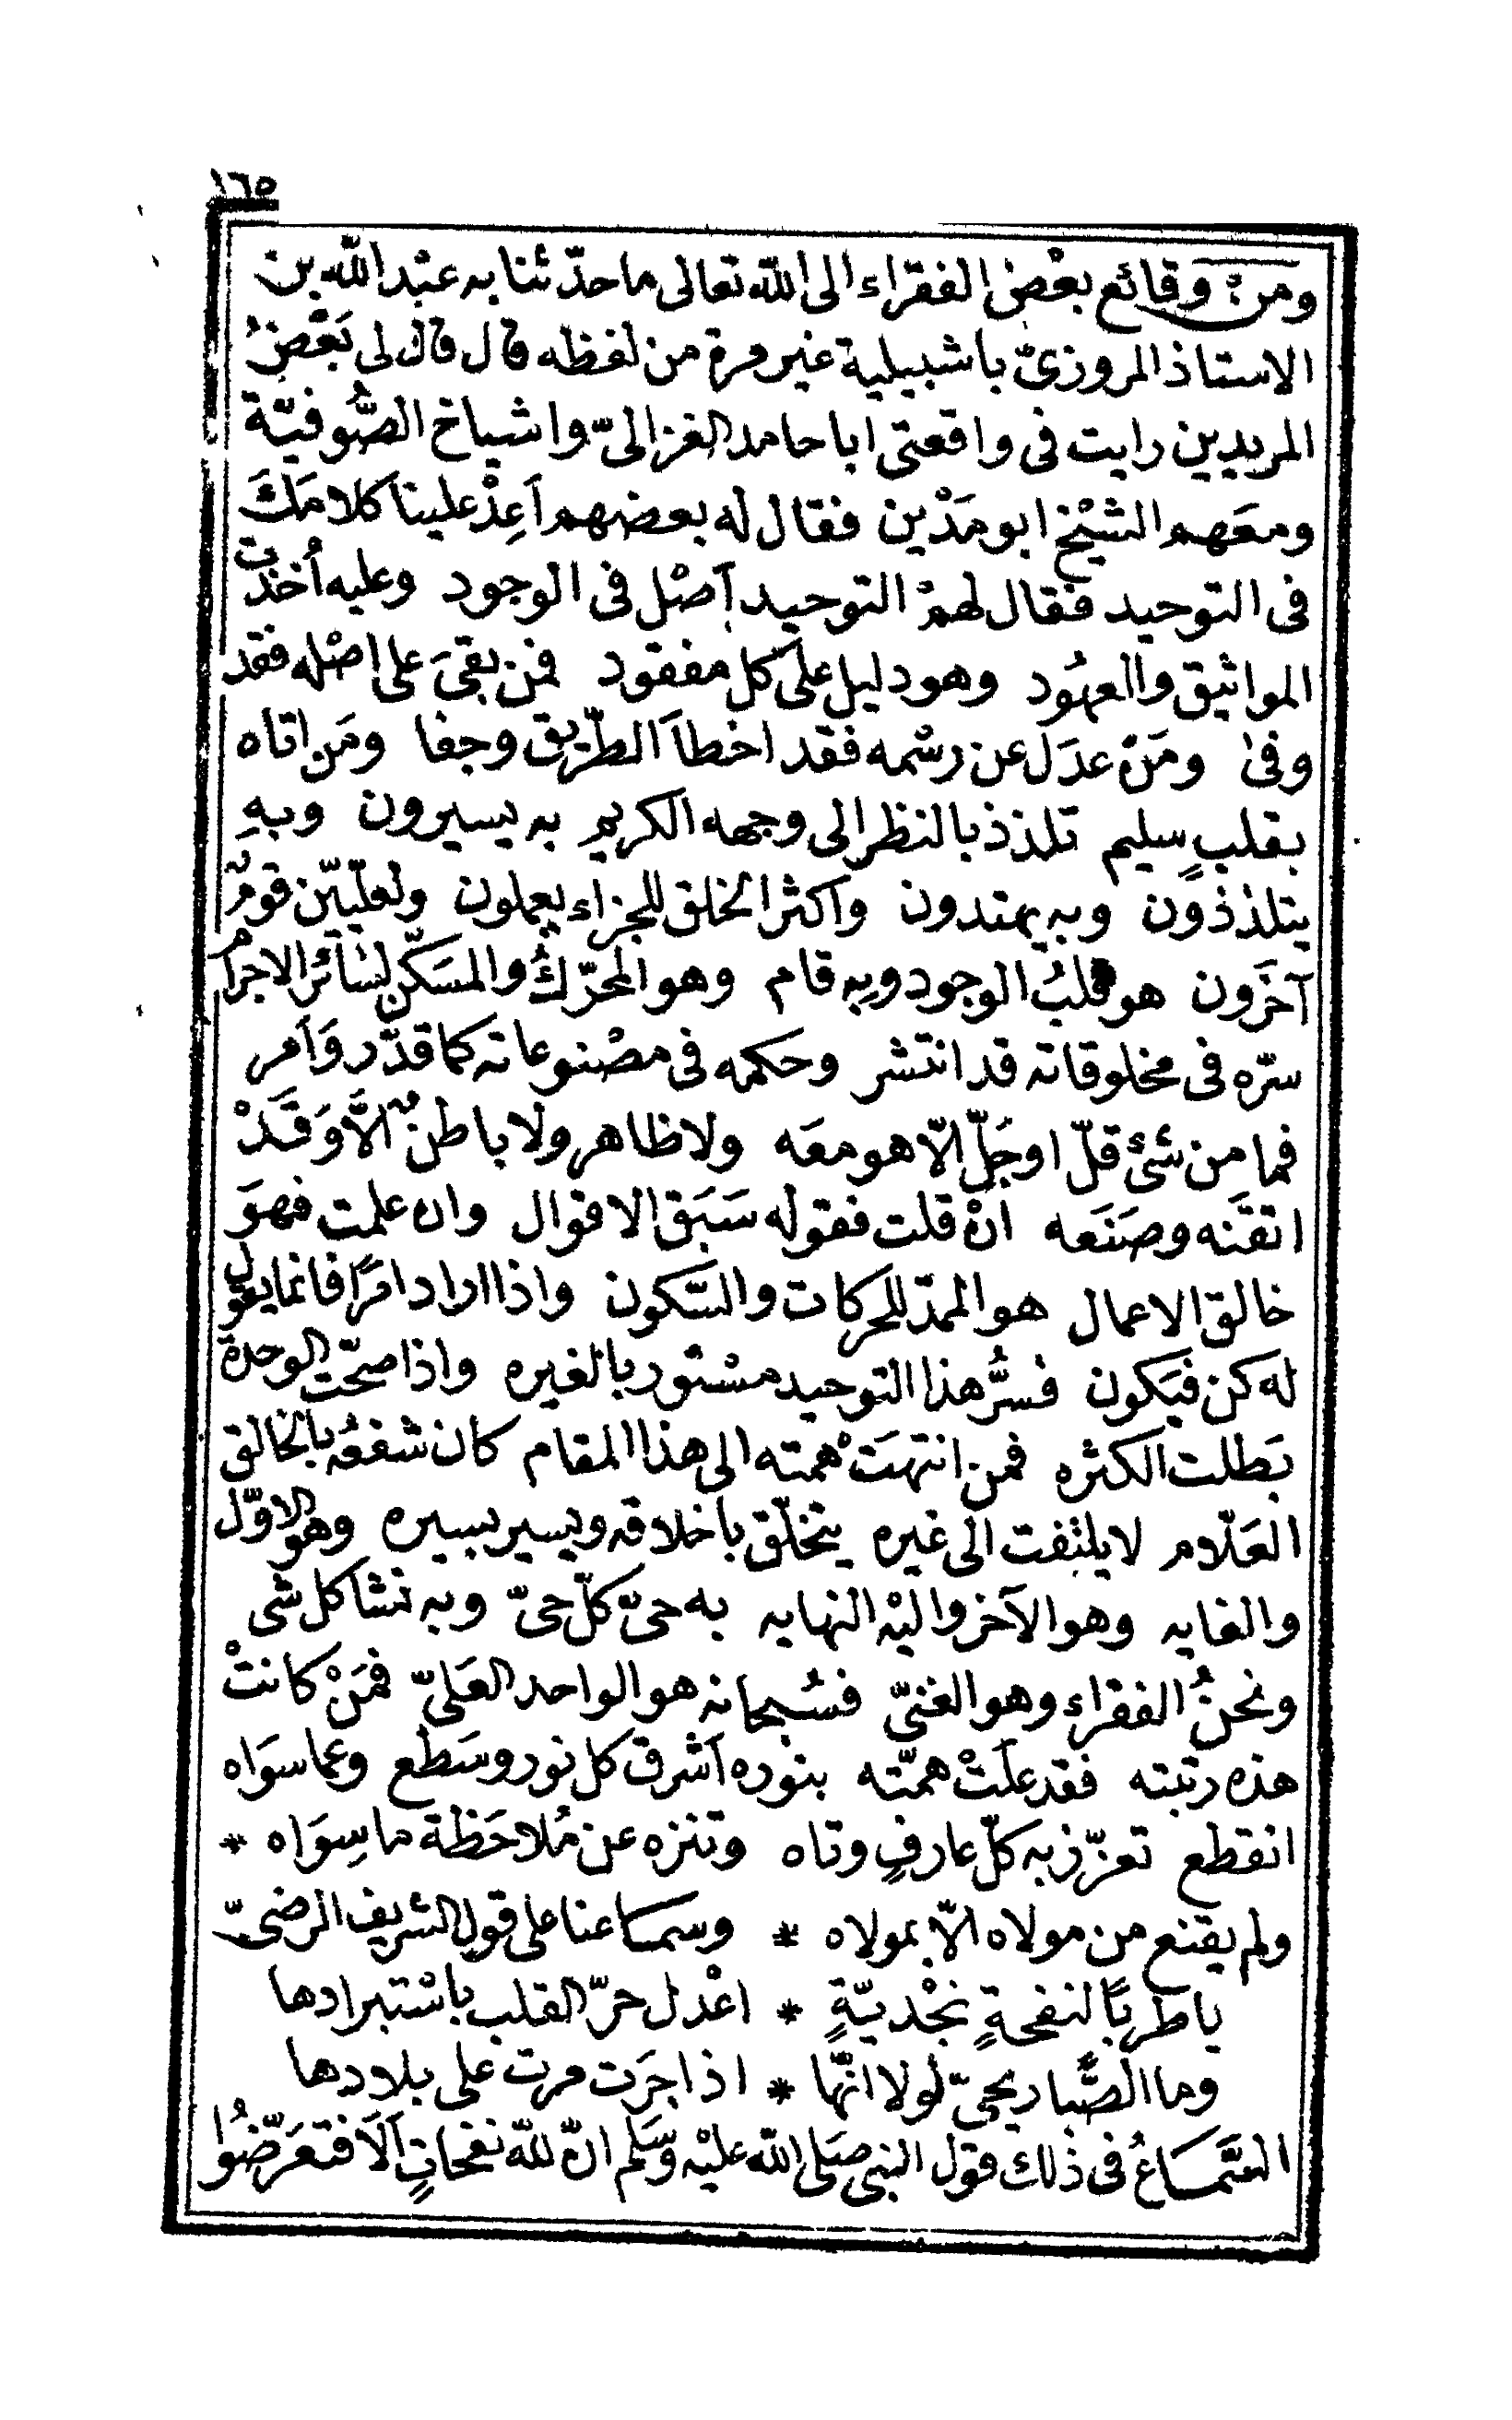 ١٦٥
ومن وقائع بعْض الفقراء الى اللّه تعالى ما حدّثنا به عبْد اللّه بن
الاستاذ المروزىّ باشبيلية غير مرة من لفظه قال قال لى بَعْضُ
المريدين رايت فى واقعتى ابا حامد الغزالىّ واشياخ الصُّوفيّة
ومعَهم الشيْخ ابو مَدْين فقال له بعضهم اَعِدْ علينا كلامَكَ
فى التوحيد فقال لهمْ التوحيد اَصْل فى الوجود وعليه اُخذت
المواثيق والعهُود وهو دليل علَى كل مفقود فمن بقىَ على اصْله فقد
وفىٰ ومَنْ عدَل عن رسْمه فقد اخطأَ الطّريق وجفا ومَن اتاه
بقلبٍ سليم تلذذ بالنظر الى وجهه الكريم به يسيرون وبهِ
يتلذذون وبه يهتدون واكثر الخلق للجزاء يعملون ولعلّيّين قومٌ
آخَرون هو قلبُ الوجود وبه قام وهو المحرّكُ والمسَكّن لسَائر الاجرام
سرّه فى مخلوقاته قد انتشر وحكمه فى مصْنوعاته كما قدّر وَاَمر
فما من شئ قلّ او جَلّ الاّ هو معَه ولا ظاهر ولا باطنٌ الاَّ وَقَدْ
اتقَنه وصَنَعه انْ قلت فقوله سَبَق الاقوال وان علمت فهوَ
خالق الاعمال هو الممدّ للحركات والسّكون واذا اراد امرًا فانما يقول
له كن فيَكون فسُّر هذا التوحيد مسْتور بالغيره واذا صحّت الوحدة
بَطلت الكثره فمن انتهَتْ همته الى هذا المقام كان شفعُه بالخالق
العَلّام لا يلتفت الى غيره يتخلّق باخلاقه ويسير بسيره وهو الاوّل
والغايه وهو الآخر واليْه النهايه به حىّ كلّ حىّ وبه نشا كل شى
ونحنُ الفقراء وهو الغنىّ فسُبحانه هو الواحد العَلىّ فمَنْ كانتْ
هذه رتبته فقد علَتْ همّته بنوره اَشرق كل نور وسَطع وعما سوَاه
انقطع تعزّز به كلّ عارفٍ وتاه وتنزه عن مُلاحَظة ما سِوَاه *
ولم يقنع من مولاه الاّ بمولاه * وسماعنا على قول الشريف الرضىّ
ياطربًا لنفحةٍ نجْديّةٍ * اعْدل حرّ القلب باسْتبرادها
وما الصَّبا ريحىّ لولا انّها * اذا جَرَت مرت على بلادها
السَّمَاعُ فى ذلك قول النبى صَلى اللّه عليْه وسَلم انّ للّه نفحاتٍ اَلاَ فتعَرّضُوا